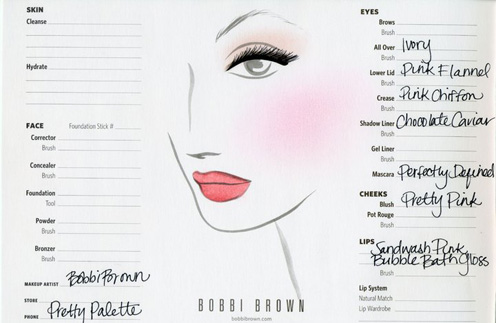 SKIN
Cleanse
Hydrate
FACE Foundation Stick #
Corrector
Brush
Concealer
Brush
Foundation
Tool
Powder
Brush
Bronzer
Brush
MAKEUP ARTIST Bobbi Brown
STORE Pretty Palette
PHONE
BOBBI BROWN
bobbibrown.com
EYES
Brows
Brush
All Over Ivory
Brush
Lower Lid Pink Flannel
Brush
Crease Pink Chiffon
Brush
Shadow Liner Chocolate Caviar
Brush
Gel Liner
Brush
Mascara Perfectly Defined
CHEEKS
Blush Pretty Pink
Pot Rouge
Brush
LIPS Sandwash Pink
Bubble Bath Gloss
Brush
Lip System
Natural Match
Lip Wardrobe